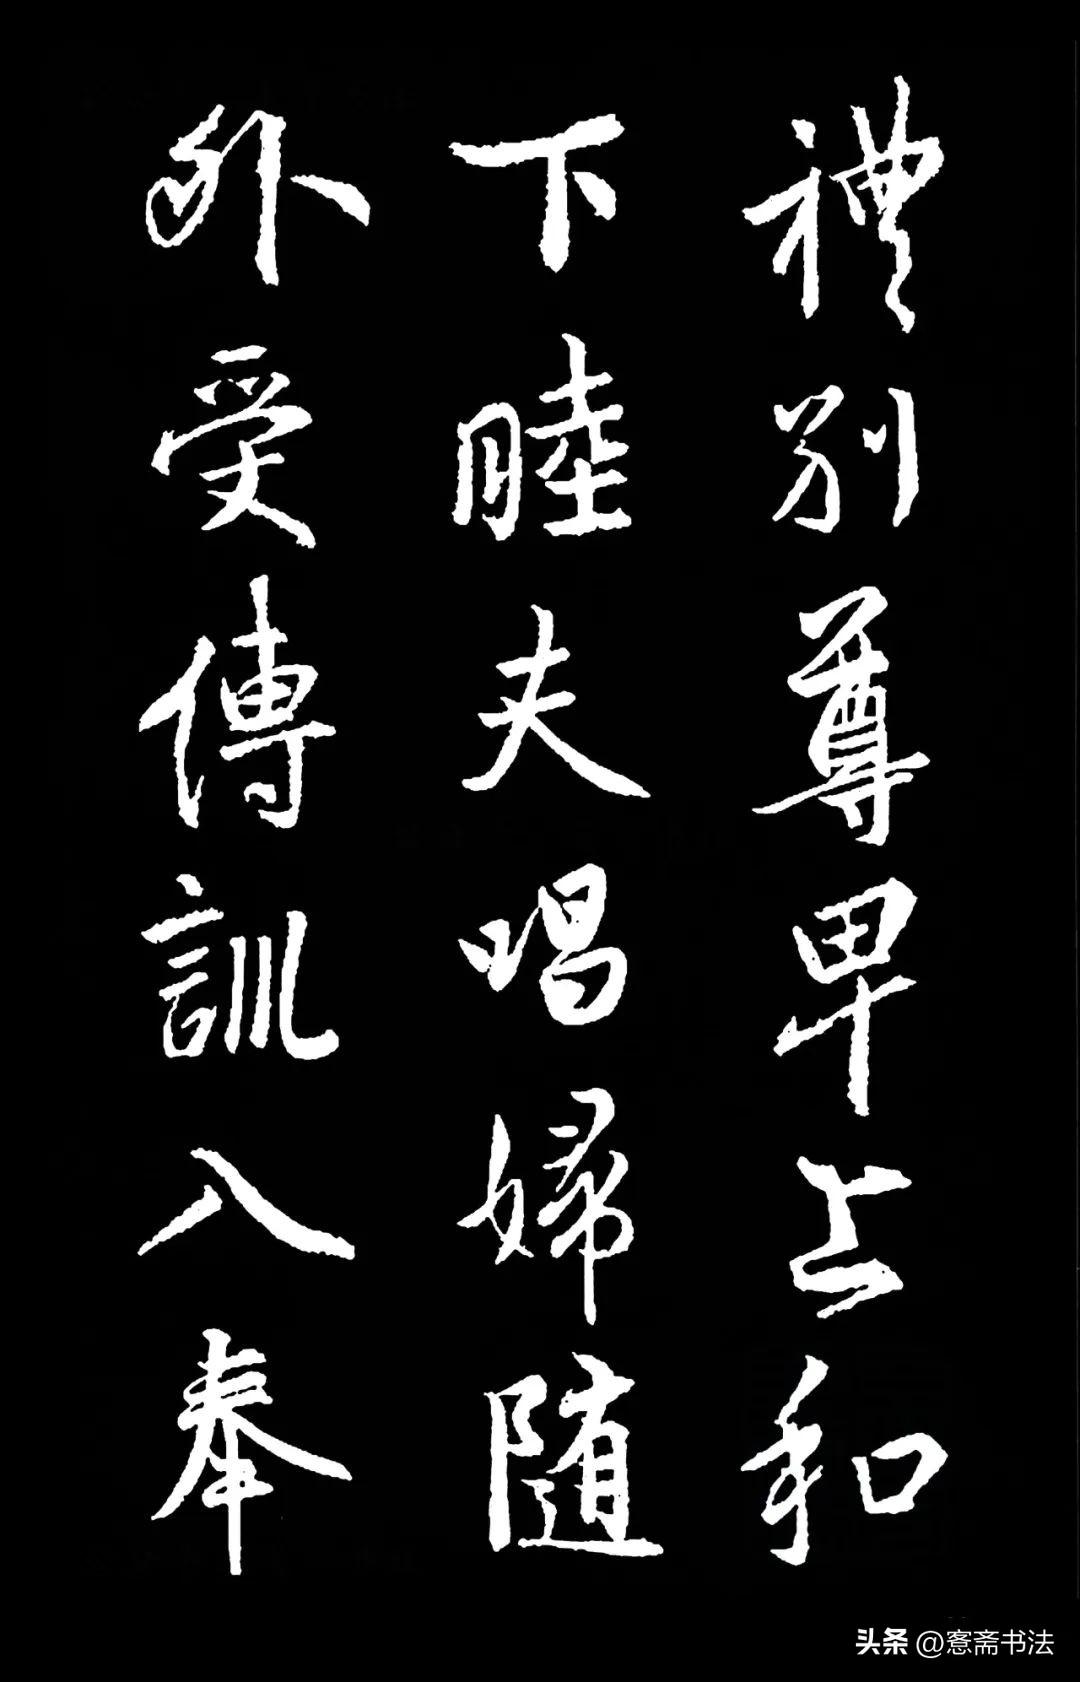 禮别尊卑上和
下睦夫唱婦随
外受傅訓入奉
头条 @愙斋书法